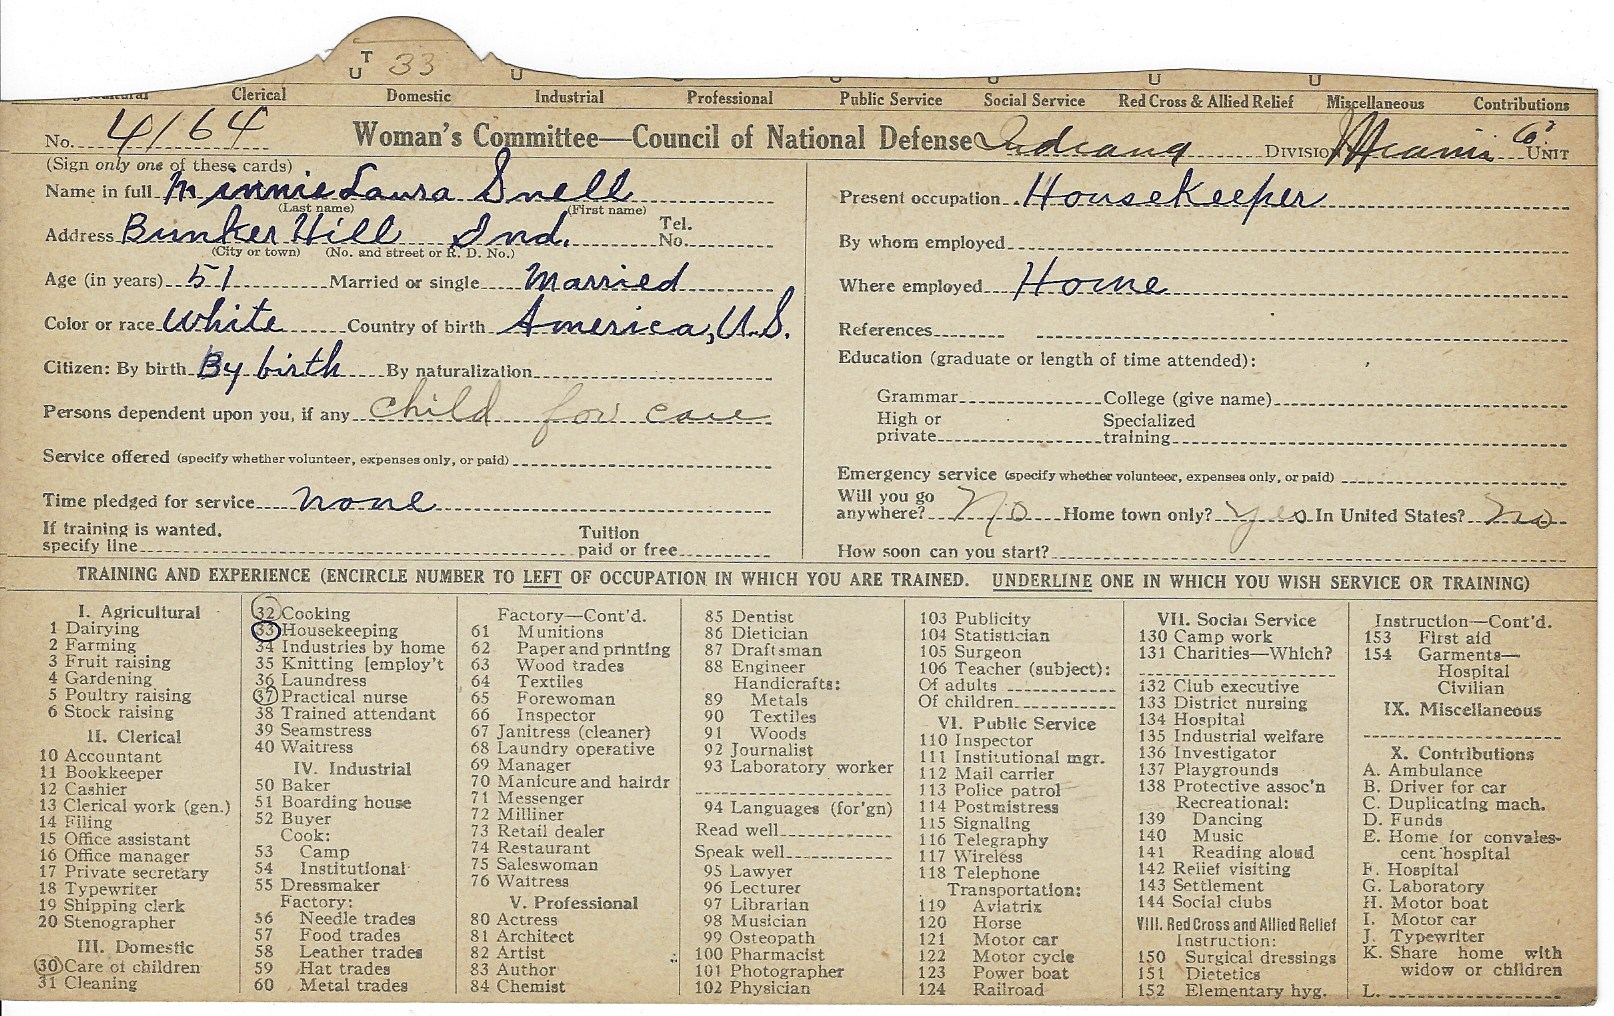 T
U 33 U U U
Clerical Domestic Industrial Professional Public Service Social Service Red Cross & Allied Relief Miscellaneous Contributions
No. 4164 Woman's Committee—Council of National Defense Indiana DIVISION Miami Co. UNIT
(Sign only one of these cards)
Name in full Minnie Laura Snell
(Last name) (First name)
Address Bunker Hill Ind. Tel. No.
(City or town) (No. and street or R. D. No.)
Age (in years) 51 Married or single Married
Color or race White Country of birth America, U.S.
Citizen: By birth By birth By naturalization
Persons dependent upon you, if any child for care
Service offered (specify whether volunteer, expenses only, or paid)
Time pledged for service none
If training is wanted, specify line Tuition paid or free
Present occupation Housekeeper
By whom employed
Where employed Home
References
Education (graduate or length of time attended):
Grammar College (give name)
High or private Specialized training
Emergency service (specify whether volunteer, expenses only, or paid)
Will you go anywhere? No Home town only? Yes In United States? No
How soon can you start?
TRAINING AND EXPERIENCE (ENCIRCLE NUMBER TO LEFT OF OCCUPATION IN WHICH YOU ARE TRAINED. UNDERLINE ONE IN WHICH YOU WISH SERVICE OR TRAINING)
I. Agricultural
1 Dairying
2 Farming
3 Fruit raising
4 Gardening
5 Poultry raising
6 Stock raising
II. Clerical
10 Accountant
11 Bookkeeper
12 Cashier
13 Clerical work (gen.)
14 Filing
15 Office assistant
16 Office manager
17 Private secretary
18 Typewriter
19 Shipping clerk
20 Stenographer
III. Domestic
30 Care of children
31 Cleaning
32 Cooking
33 Housekeeping
34 Industries by home
35 Knitting [employ't
36 Laundress
37 Practical nurse
38 Trained attendant
39 Seamstress
40 Waitress
IV. Industrial
50 Baker
51 Boarding house
52 Buyer
Cook:
53 Camp
54 Institutional
55 Dressmaker
Factory:
56 Needle trades
57 Food trades
58 Leather trades
59 Hat trades
60 Metal trades
Factory—Cont'd.
61 Munitions
62 Paper and printing
63 Wood trades
64 Textiles
65 Forewoman
66 Inspector
67 Janitress (cleaner)
68 Laundry operative
69 Manager
70 Manicure and hairdr
71 Messenger
72 Milliner
73 Retail dealer
74 Restaurant
75 Saleswoman
76 Waitress
V. Professional
80 Actress
81 Architect
82 Artist
83 Author
84 Chemist
85 Dentist
86 Dietician
87 Draftsman
88 Engineer
Handicrafts:
89 Metals
90 Textiles
91 Woods
92 Journalist
93 Laboratory worker
94 Languages (for'gn)
Read well
Speak well
95 Lawyer
96 Lecturer
97 Librarian
98 Musician
99 Osteopath
100 Pharmacist
101 Photographer
102 Physician
103 Publicity
104 Statistician
105 Surgeon
106 Teacher (subject):
Of adults
Of children
VI. Public Service
110 Inspector
111 Institutional mgr.
112 Mail carrier
113 Police patrol
114 Postmistress
115 Signaling
116 Telegraphy
117 Wireless
118 Telephone
Transportation:
119 Aviatrix
120 Horse
121 Motor car
122 Motor cycle
123 Power boat
124 Railroad
VII. Social Service
130 Camp work
131 Charities—Which?
132 Club executive
133 District nursing
134 Hospital
135 Industrial welfare
136 Investigator
137 Playgrounds
138 Protective assoc'n
Recreational:
139 Dancing
140 Music
141 Reading aloud
142 Relief visiting
143 Settlement
144 Social clubs
VIII. Red Cross and Allied Relief
Instruction:
150 Surgical dressings
151 Dietetics
152 Elementary hyg.
Instruction—Cont'd.
153 First aid
154 Garments—
Hospital
Civilian
IX. Miscellaneous
X. Contributions
A. Ambulance
B. Driver for car
C. Duplicating mach.
D. Funds
E. Home for convales-
cent hospital
F. Hospital
G. Laboratory
H. Motor boat
I. Motor car
J. Typewriter
K. Share home with
widow or children
L.